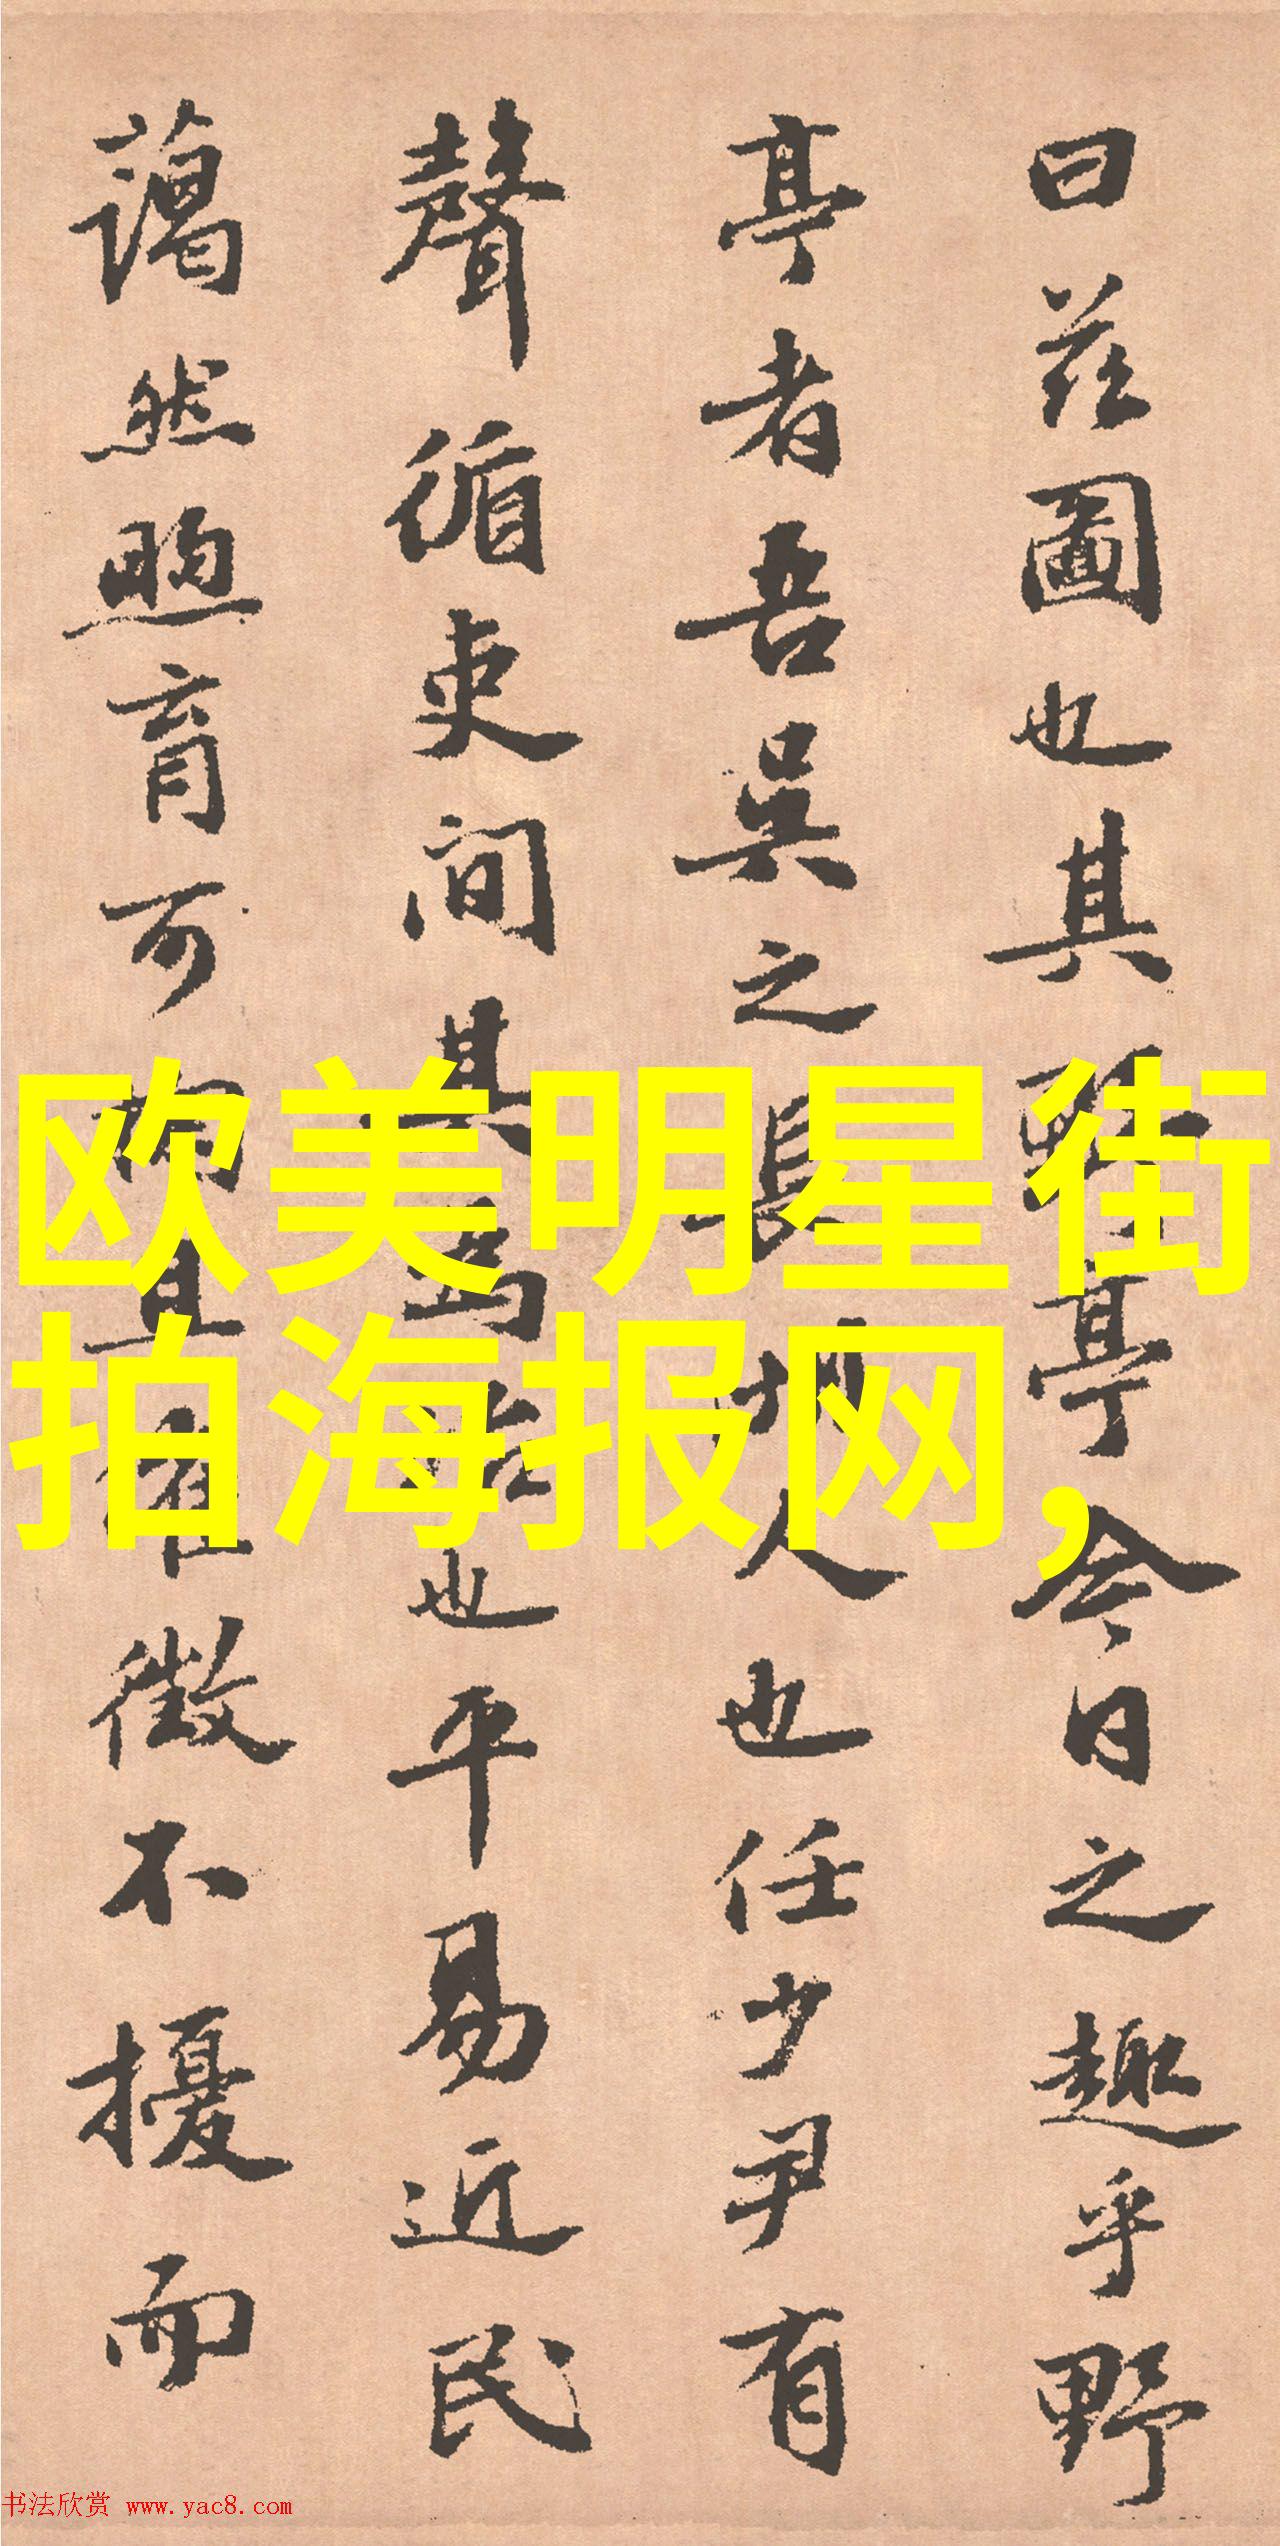 曰茲圖也其野亭今日之趣乎野
亭者吾吳之長州人也任少尹有
聲循吏间其為治也平易近民
藹然煦育可
徵不擾而
欧美明星街
拍海报网，
书法欣赏 www.yac8.com